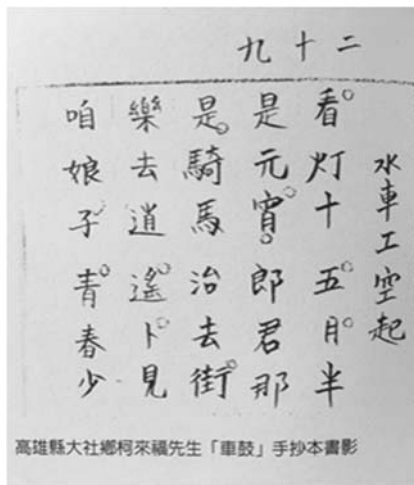 二十九
水車工空起
看灯十五月半
是元宵郎君那
是騎馬治去街
樂去逍遙卜見
咱娘子青春少
高雄縣大社鄉柯來福先生「車鼓」手抄本書影